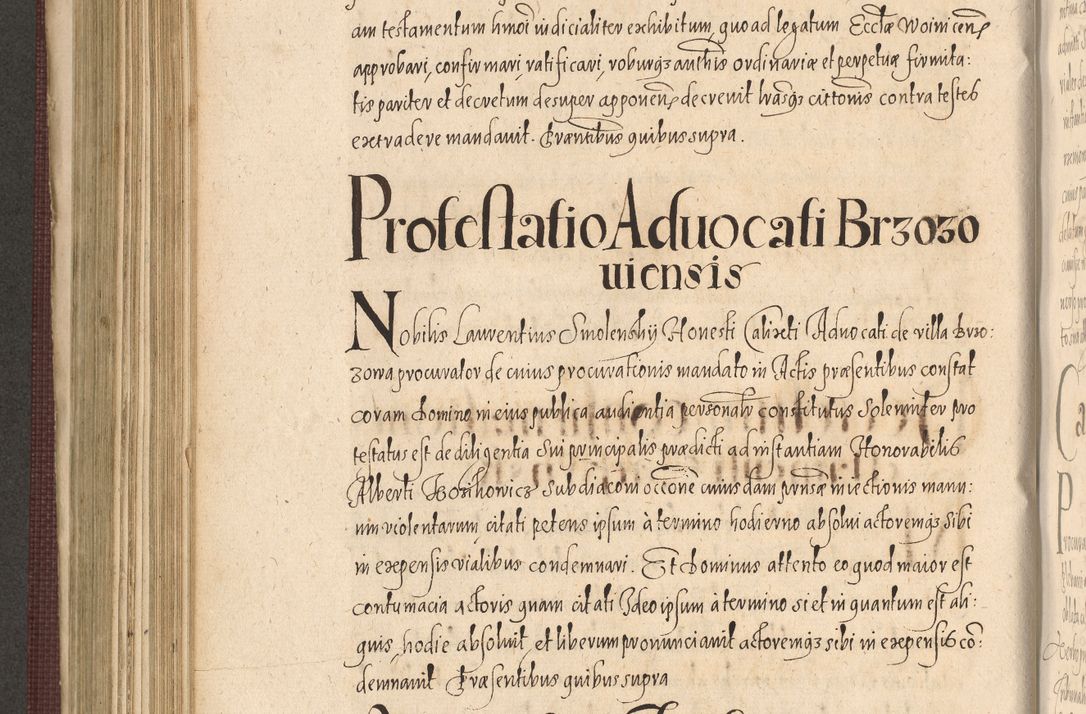 am testamentum hmoi iudicialiter exhibitum, quo ad legatum Ecclæ Woinicen
approbari, confirmari, ratificari, roburq3 authis ordinariæ et perpetuæ firmita:
tis pariter et decretum desuper apponen decrevit lrasq3 citționis contra testes
extradere mandavit. Præntibus quibus supra.
Protestatio Aduocati Brzozo
uiensis
Nobilis Laurentius Smolenskij Honesti Calixti Aduocati de villa Brzo:
zowa procurator de cuius procurationis mandato in Actis præsentibus constat
coram Domino in eius publica audientia personalr constitutus Solenniter pro
testatus est de diligentia Sui principalis prædicti ad instantiam Honorabilis
Alberti Subdiaconi occone cuiusdam prnsæ iniectionis manu:
um violentarum citati petens ipsum à termino hodierno absolui actoremq3 sibi
in expensis vialibus condemnari. Et Dominus attento eo quod maior est
contumacia actoris quam citati Ideo ipsum à termino si et in quantum est ali:
quis, hodie absoluit, et liberum pronunciauit actoremq3 sibi in expensis co:
demnauit Præsentibus quibus supra